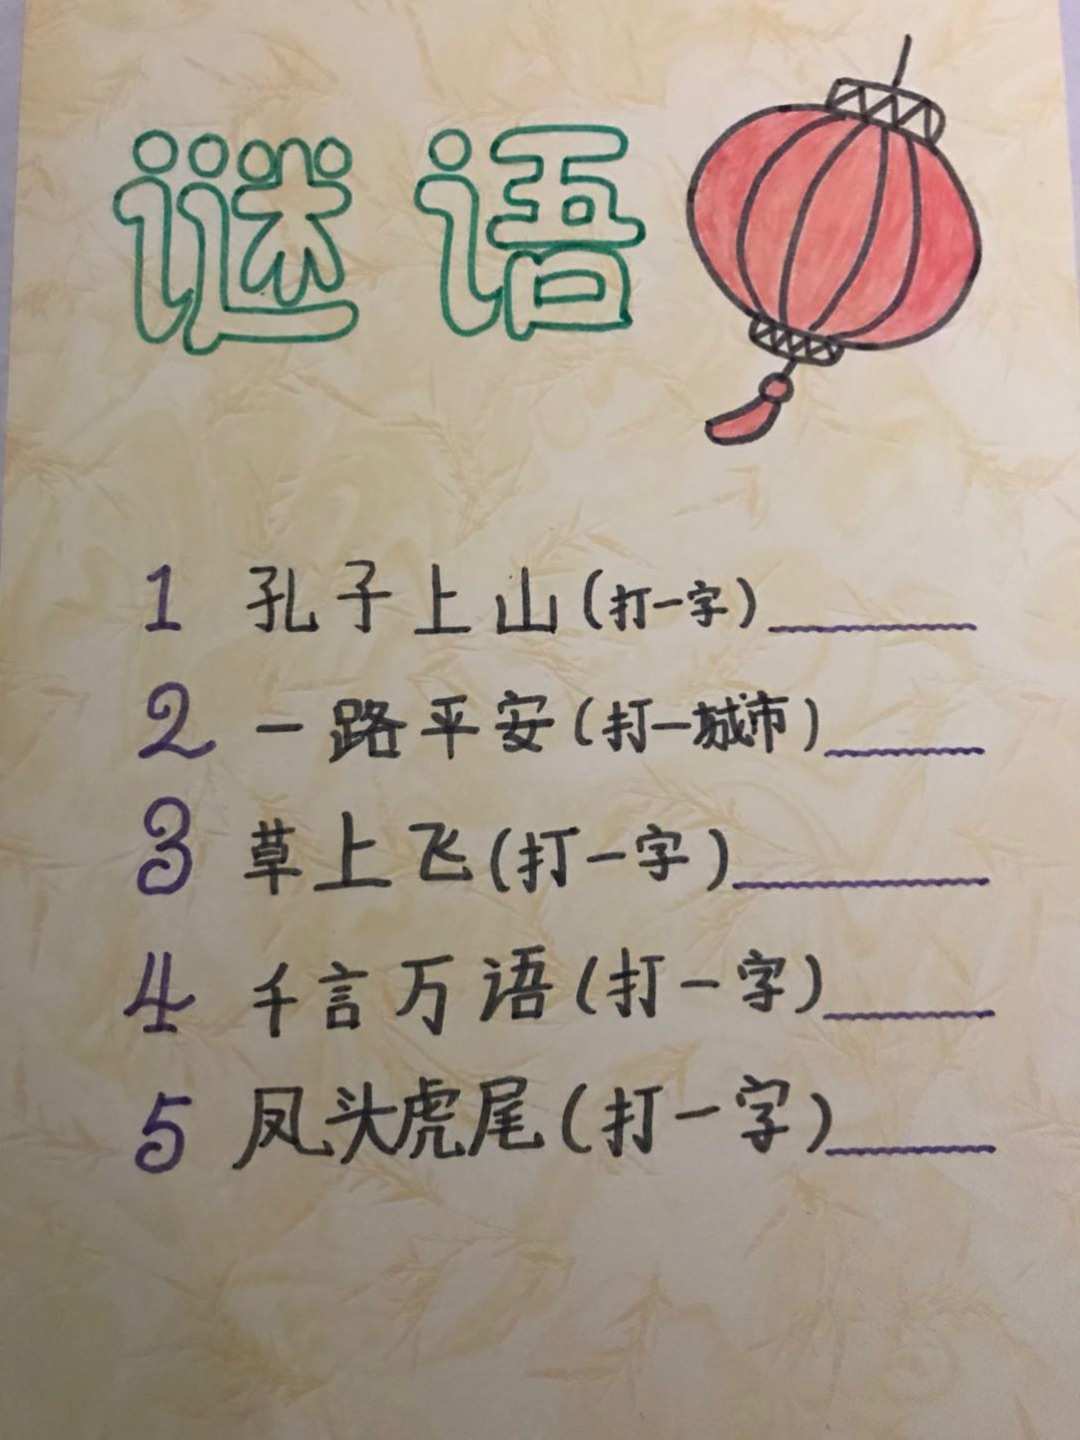 谜语
1 孔子上山(打一字)
2 一路平安(打一城市)
3 草上飞(打一字)
4 千言万语(打一字)
5 凤头虎尾(打一字)